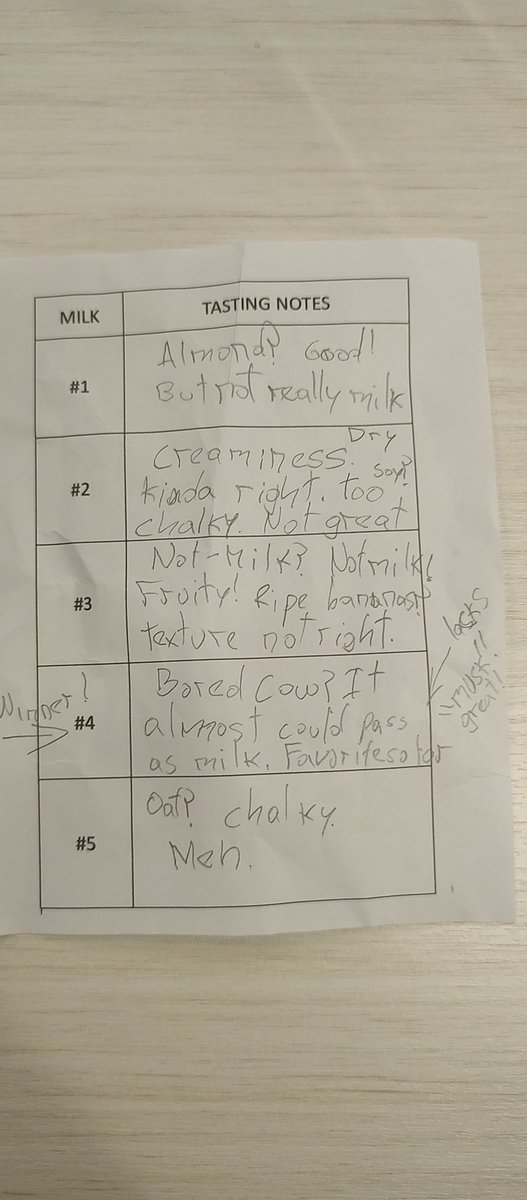 MILK TASTING NOTES
#1
Almond? Good!
But not really milk
#2
Dry
Creaminess. soy?
kinda right. too
chalky. Not great
#3
Not-Milk? Not milk!
Fruity! Ripe bananas?
texture not right.
Winner!
#4
Bored Cow? It
almost could pass
as milk. Favorite so far
lacks
"musk"!
great!!
#5
Oat? chalky.
Meh.